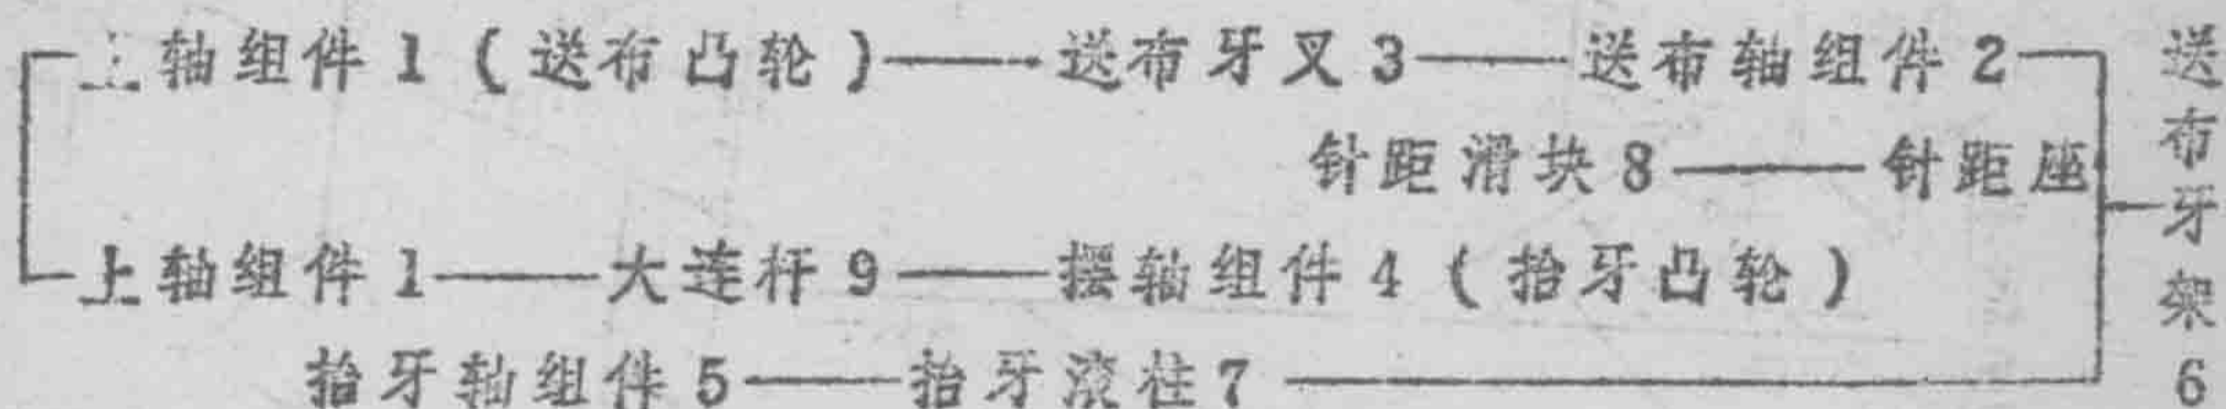 上轴组件1（送布凸轮）——送布牙叉3——送布轴组件2
针距滑块8——针距座
上轴组件1——大连杆9——摆轴组件4（抬牙凸轮）
抬牙轴组件5——抬牙滚柱7
送布牙架6